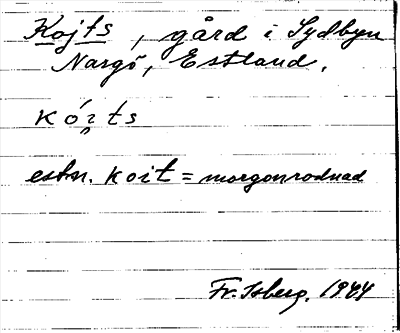 Kojts, gård i Sydbyn
Nargö, Estland.
kó̤ıts
estn. koit = morgonrodnad
Fr. Isberg, 1944